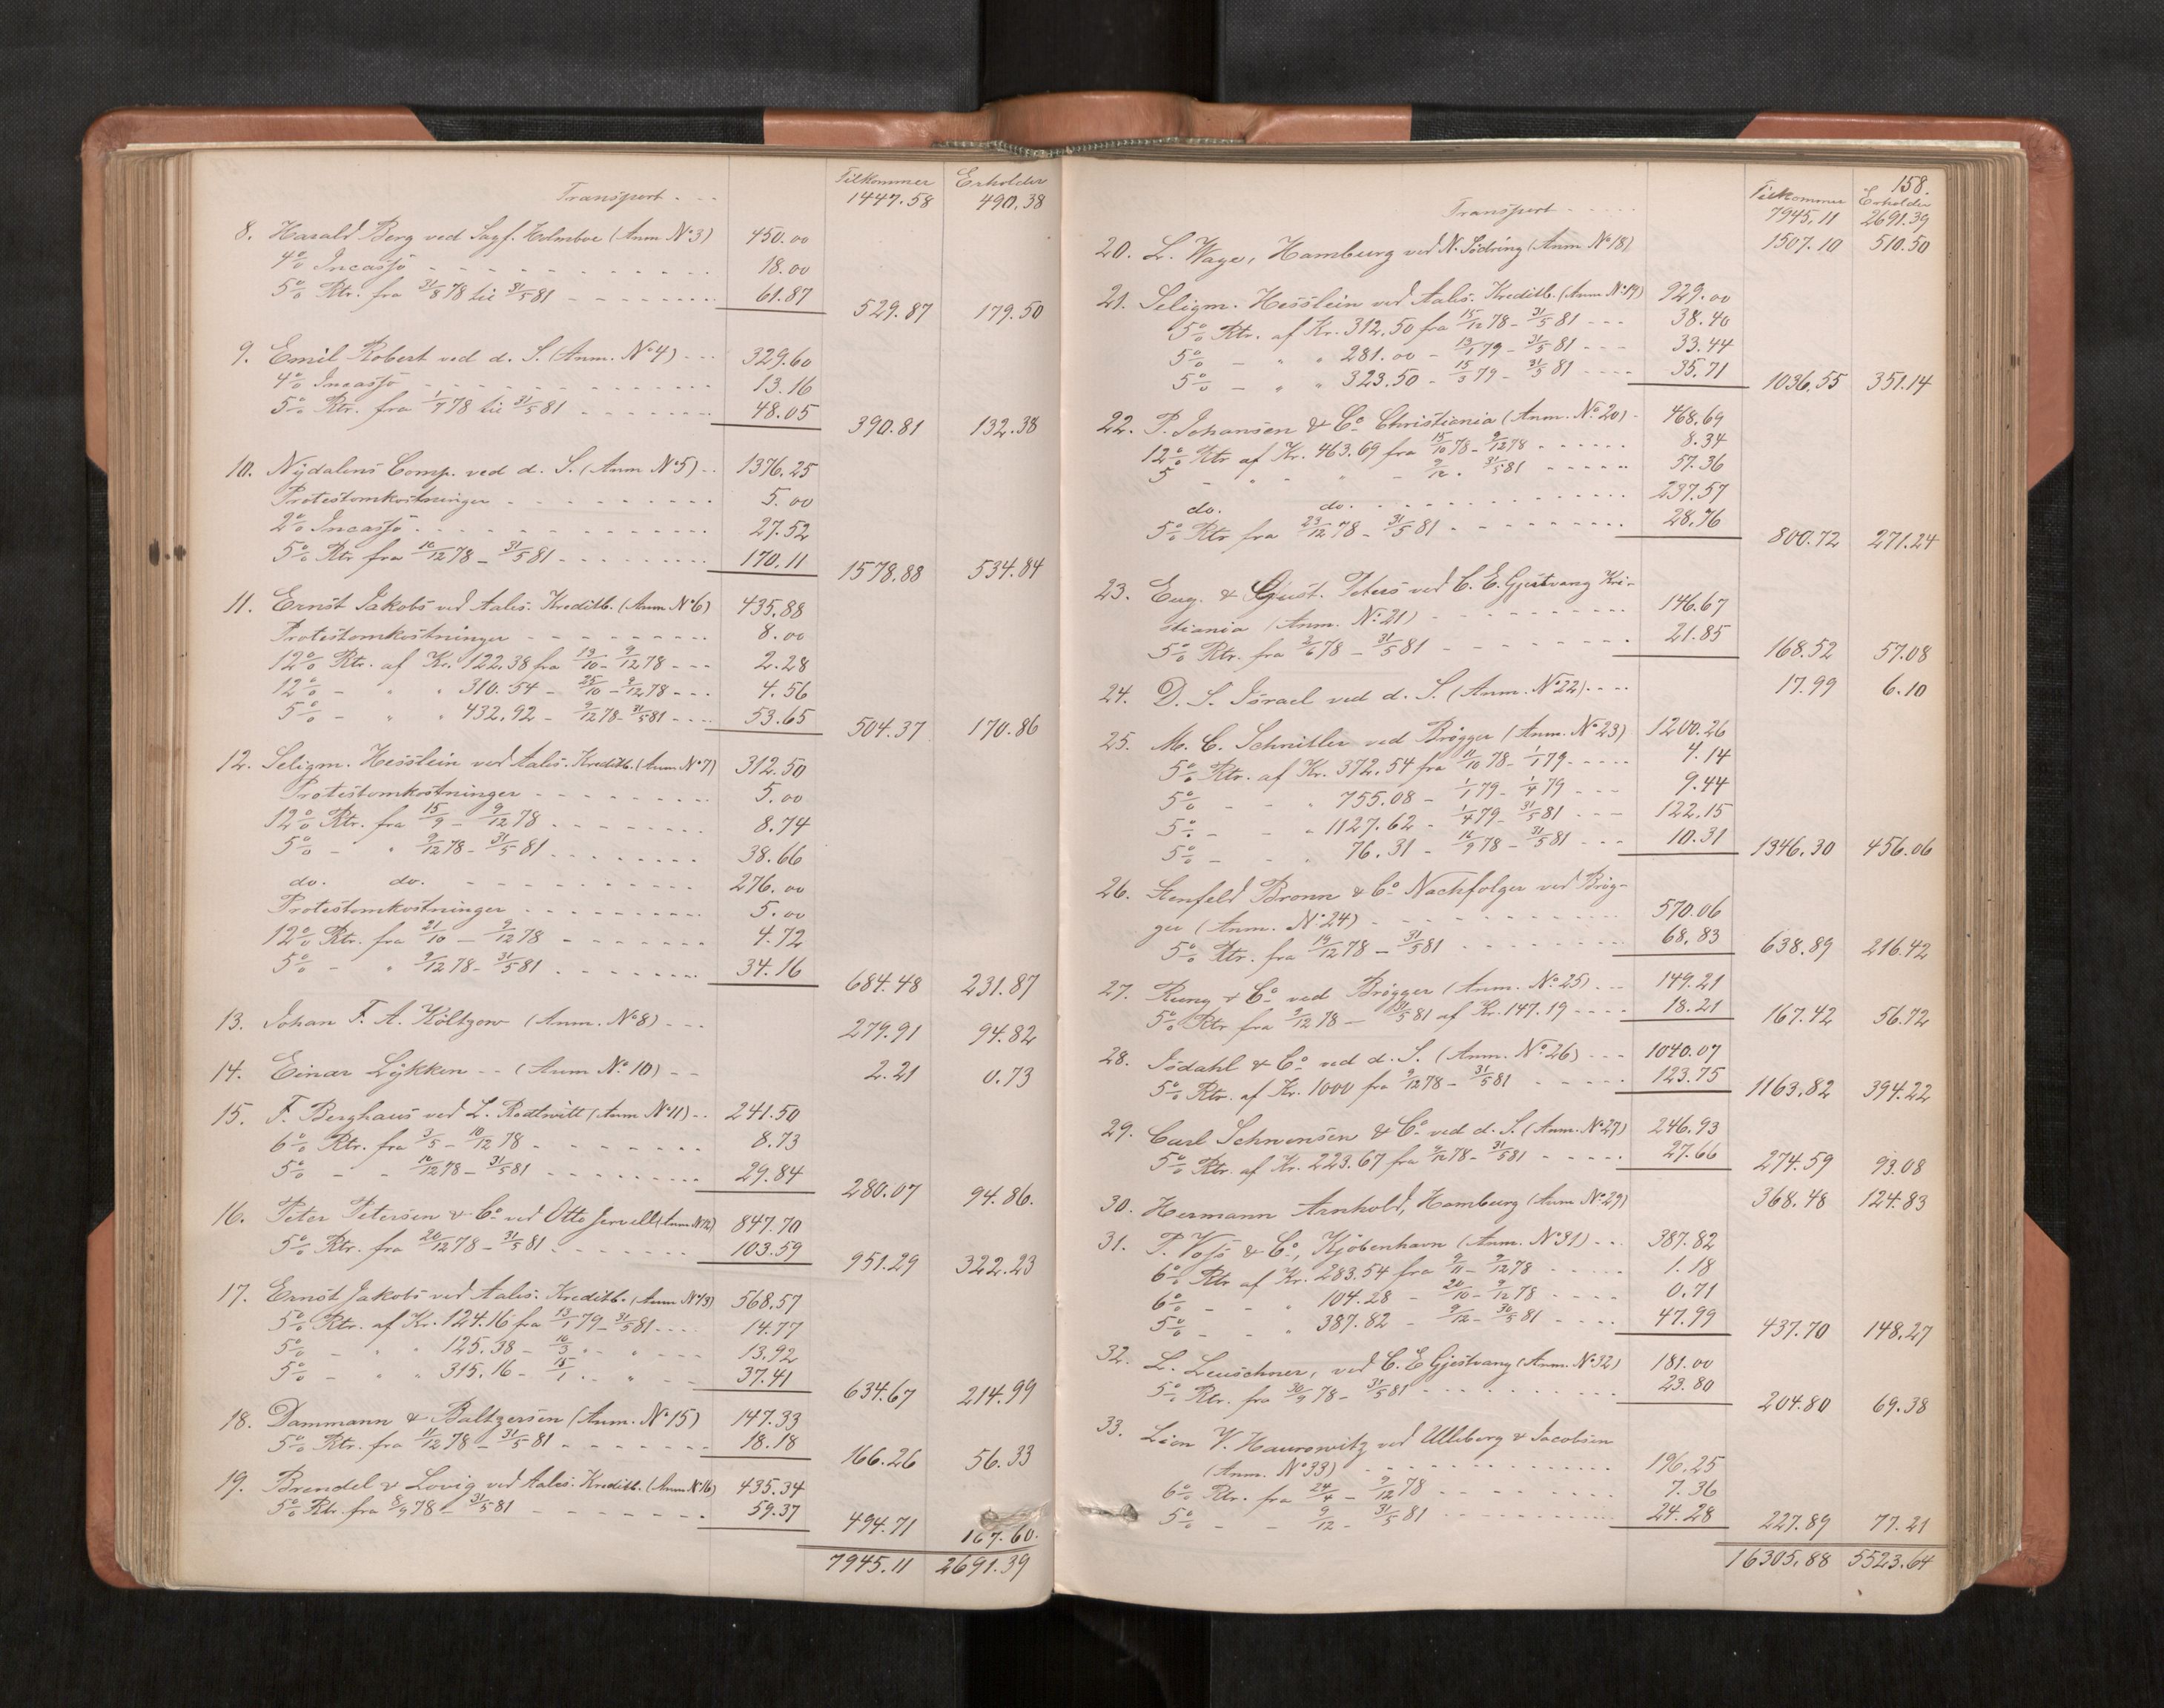 Tilkommer Erholder
Transport . . . 1447.58 490.38
8. Harald Berg ved Sagf. Holmboe (Anm No 3) 450.00
4% Incasso 18.00
5% Rtr. fra 31/8 78 til 31/5 81 61.87 529.87 179.50
9. Emil Robert ved d. S. (Anm. No 4) 329.60
4% Incasso 13.16
5% Rtr. fra 1/7 78 til 31/5 81 48.05 390.81 132.38
10. Nydalens Comp. ved d. S. (Anm No 5) 1376.25
Protestomkostninger 5.00
2% Incasso 27.52
5% Rtr fra 10/12 78 - 31/5 81 170.11 1578.88 534.84
11. Ernst Jakobs ved Aales. Kreditb. (Anm No 6) 435.88
Protestomkostninger 8.00
12% Rtr. af Kr. 122.38 fra 19/10 - 9/12 78 2.28
12% - " " 310.54 - 25/10 - 9/12 78 4.56
5% - " " 432.92 - 9/12 78 - 31/5 81 53.65 504.37 170.86
12. Seligm. Hesslein ved Aales. Kreditb. (Anm No 7) 312.50
Protestomkostninger 5.00
12% Rtr. fra 15/9 - 9/12 78 8.74
5% - " 9/12 78 - 31/5 81 38.66
do. do. 276.00
Protestomkostninger 5.00
12% Rtr. fra 21/10 - 9/12 78 4.72
5% - " 9/12 78 - 31/5 81 34.16 684.48 231.87
13. Johan F. A. Költzow (Anm. No 8) 279.91 94.82
14. Einar Lykken - - (Anm No 10) - - 2.21 0.73
15. F. Berghaus ved L. Rodtwitt (Anm No 11) 241.50
6% Rtr. fra 3/5 - 10/12 78 8.73
5% - - 10/12 78 - 31/5 81 29.84 280.07 94.86.
16. Peter Petersen & Co ved Otto Jervell (Anm No 12) 847.70
5% Rtr. fra 20/12 78 - 31/5 81 103.59 951.29 322.23
17. Ernst Jakobs ved Aales. Kreditb. (Anm No 13) 568.57
5% Rtr. af Kr. 124.16 fra 13/1 79 - 31/5 81 14.77
5% - " " 125.38 - 10/3 " - " 13.92
5% - " " 315.16 - 15/1 " - " 37.41 634.67 214.99
18. Dammann & Baltzersen (Anm. No 15) 147.33
5% Rtr. fra 11/12 78 - 31/5 81 18.18 166.26 56.33
19. Brendel & Lovig ved Aales. Kreditb. (Anm No 16) 435.34
5% Rtr. fra 8/9 78 - 31/5 81 59.37 494.71 167.60.
7945.11 2691.39
158.
Tilkommer Erholder
Transport 7945.11 2691.39
20. L. Wage, Hamburg ved N. Södring (Anm No 18) 1507.10 510.50
21. Seligm. Hesslein ved Aales. Kreditb. (Anm No 19) 929.00
5% Rtr. af Kr. 312.50 fra 15/12 78 - 31/5 81 38.40
5% - " " 281.00 - 13/1 79 - 31/5 81 33.44
5% - " " 323.50 - 15/3 79 - 31/5 81 35.71 1036.55 351.14
22. P. Johansen & Co Christiania (Anm. No 20) 468.69
12% Rtr af Kr. 463.69 fra 15/10 78 - 9/12 78 8.34
5 - " - " - 9/12 - 31/5 81 57.36
do. do. 237.57
5% Rtr fra 23/12 78 - 31/5 81 28.76 800.72 271.24
23. Eug. & Gust. Peters ved C. E. Gjestvang Kri-
stiania (Anm. No 21) 146.67
5% Rtr. fra 2/6 78 - 31/5 81 21.85 168.52 57.08
24. D. S. Israel ved d. S. (Anm. No 22) 17.99 6.10
25. M. C. Schnitler ved Brøgger (Anm. No 23) 1200.26
5% Rtr. af Kr. 372.54 fra 11/10 78 - 1/1 79 4.14
5% - - " 755.08 - 1/1 79 - 1/4 79 9.44
5% - - " 1127.62 - 1/4 79 - 31/5 81 122.15
5% - - " 76.31 - 16/9 78 - 31/5 81 10.31 1346.30 456.06
26. Stenfeld Bronn & Co Nachfolger ved Brøg-
ger (Anm. No 24) 570.06
5% Rtr. fra 19/12 78 - 31/5 81 68.83 638.89 216.42
27. Kung & Co ved Brøgger (Anm. No 25) 149.21
5% Rtr fra 9/12 78 - 31/5 81 af Kr. 147.19 18.21 167.42 56.72
28. Isdahl & Co ved d. S. (Anm. No 26) 1040.07
5% Rtr. af Kr. 1000 fra 9/12 78 - 31/5 81 123.75 1163.82 394.22
29. Carl Schwensen & Co ved d. S. (Anm. No 27) 246.93
5% Rtr. af Kr. 223.67 fra 9/12 78 - 31/5 81 27.66 274.59 93.08
30. Hermann Arnhold, Hamburg (Anm No 29) 368.48 124.83
31. P. Voss & Co, Kjöbenhavn (Anm. No 31) 387.82
6% Rtr af Kr. 283.54 fra 9/11 - 9/12 78 1.18
6% - - " 104.28 - 20/10 - 9/12 78 0.71
5% - - " 387.82 - 9/12 - 30/5 81 47.99 437.70 148.27
32. L. Leuschner, ved C. E Gjestvang (Anm. No 32) 181.00
5% Rtr. fra 30/9 78 - 31/5 81 23.80 204.80 69.38
33. Lion V. Haurowitz ved Ulleberg & Jacobsen
(Anm. No 33) 196.25
6% Rtr. fra 24/4 - 9/12 78 7.36
5% - - 9/12 - 31/5 81 24.28 227.89 77.21
16305.88 5523.64